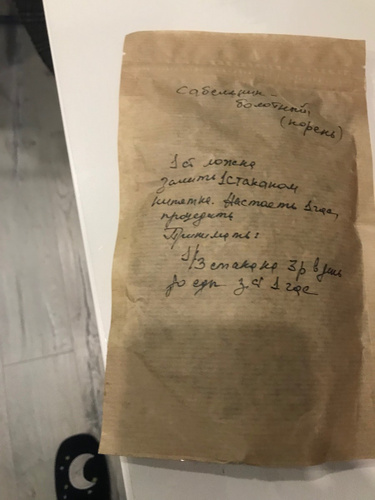 Сабельник -
болотный
(корень)
1 ст ложка
залить 1 стаканом
кипятка. Настоять 1 час,
процедить
Принимать:
1/3 стакана 3 р в день
до еды за 1 час